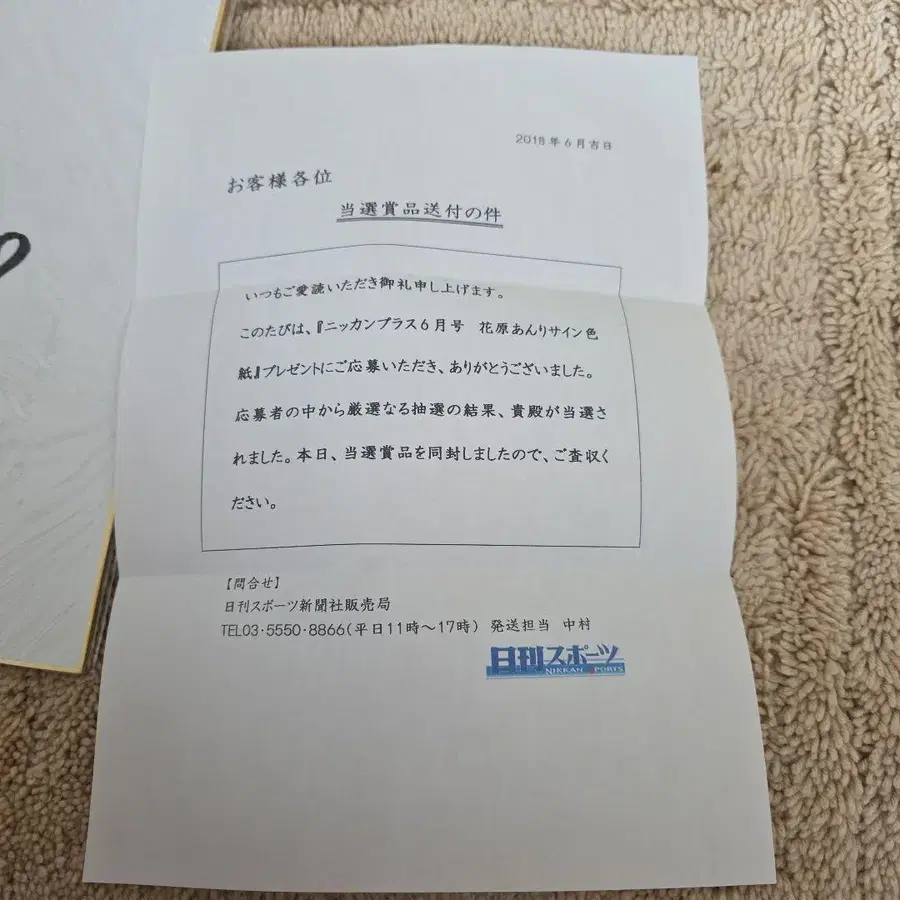 2018年6月吉日
お客様各位
当選賞品送付の件
いつもご愛読いただき御礼申し上げます。
このたびは、『ニッカンプラス6月号　花原あんりサイン色
紙』プレゼントにご応募いただき、ありがとうございました。
応募者の中から厳選なる抽選の結果、貴殿が当選さ
れました。本日、当選賞品を同封しましたので、ご査収く
ださい。
【問合せ】
日刊スポーツ新聞社販売局
TEL03・5550・8866(平日11時〜17時)　発送担当　中村
日刊スポーツ
NIKKAN SPORTS